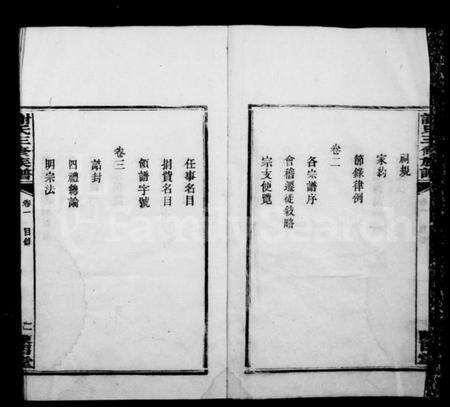 祠規
家約
節錄律例
卷二
各宗譜序
會稽遷徙敘略
宗支便覽
任事名目
捐貲名目
領譜字號
卷三
誥封
四禮總論
明宗法
謝氏三修族譜
卷一
目錄